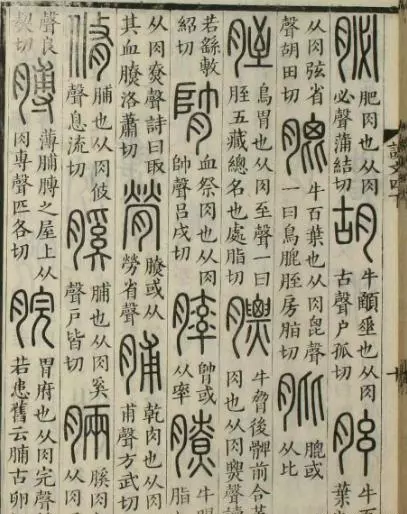 䏟
肥肉也从肉
必聲蒲結切
胡
牛顄垂也从肉
古聲户孤切
胘
从肉弦省
聲胡田切
膍
牛百葉也从肉毘聲
一曰鳥膍胵房脂切
肶
膍或
从比
胵
鳥胃也从肉至聲一曰
胵五藏總名也處脂切
膘
牛脅後髀前合革
肉也从肉㶾聲讀
若繇敷
紹切
血祭肉也从肉
帥聲吕戌切
膟
或
从率
膫
牛腸
脂
从肉尞聲詩曰取
其血膫洛蕭切
膋
膫或从
勞省聲
脯
乾肉也从肉
甫聲方武切
脩
脯也从肉攸
聲息流切
膎
脯也从肉奚
聲户皆切
脼
膎肉
从肉
聲良
切
膊
薄脯膊之屋上从
肉尃聲匹各切
脘
胃府也从肉完聲
若患舊云脯古卵